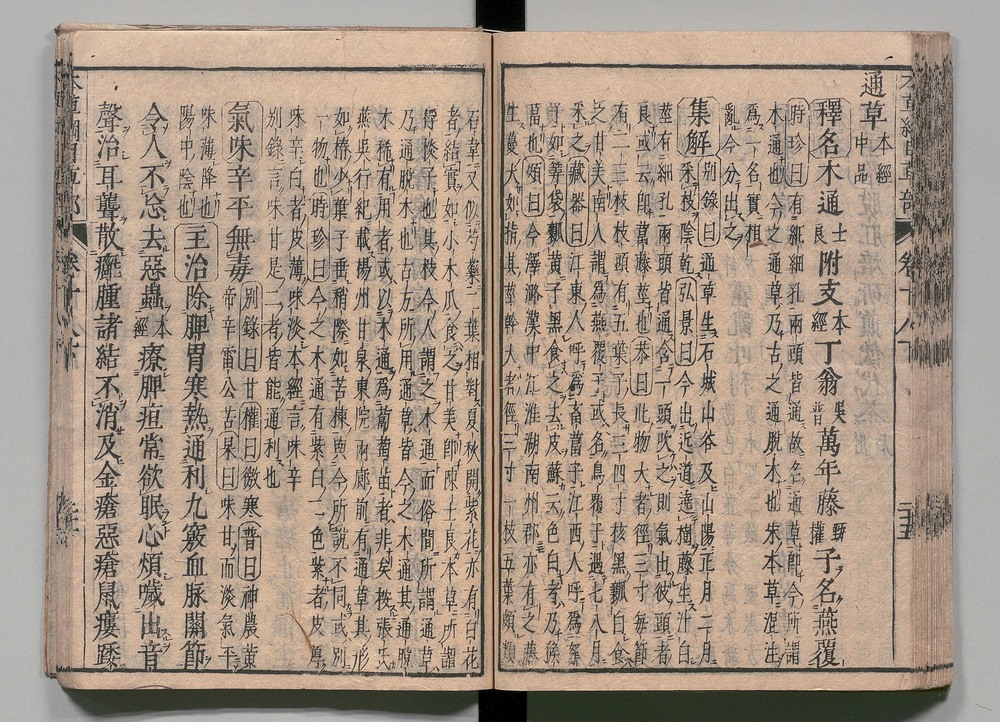 通草 本經中品
釋名 木通 士良 附支 本經 丁翁 吳普 萬年藤 甄權 子名燕覆
時珍曰有細細孔兩頭皆通故名通草即今所謂
木通也今之通草乃古之通脫木也宋本草混注
爲一名實相
亂今分出之
集解 別錄曰通草生石城山谷及山陽正月二月
采枝陰乾弘景曰今出近道遶樹藤生汁白
莖有細孔兩頭皆通含一頭吹之則氣出彼頭者
良或云即葍藤莖也恭曰此物大者徑三寸每節
有二三枝枝頭有五葉子長三四寸核黑瓤白食
之甘美南人謂爲燕覆子或名烏覆子遇七八月
采之藏器曰江東人呼爲畜葍子江西人呼爲拏
子如筭袋瓤黃子黑食之去皮蘇云色白者乃猴
葍也頌曰今澤潞漢中江淮湖南州郡亦有之藤
生蔓大如指其莖幹大者徑三寸一枝五葉頗類
石韋又似芍藥三葉相對夏秋開紫花亦有白花
者結實如小木瓜食之甘美即陳士良本草所謂
桴棪子也其枝今人謂之木通而俗間所謂通草
乃通脫木也古方所用通草皆今之木通其通脫
木稀有用者或以木通爲葡萄苗者非矣按張氏
燕吳行紀載楊州甘泉東院兩廊前有通草其形
如椿少葉子垂梢際如苦楝與今所說不同或別
一物也時珍曰今之木通有紫白二色紫者皮厚
味辛白者皮薄味淡本經言味辛
別錄言味甘是二者皆能通利也
氣味 辛平無毒 別錄曰甘權曰微寒普曰神農黃
帝辛雷公苦杲曰味甘而淡氣平
味薄降也
陽中陰也 主治 除脾胃寒熱通利九竅血脉關節
令人不忘去惡蟲 本經 療脾疸常欲眠心煩噦出音
聲治耳聾散癰腫諸結不消及金瘡惡瘡鼠瘻踒